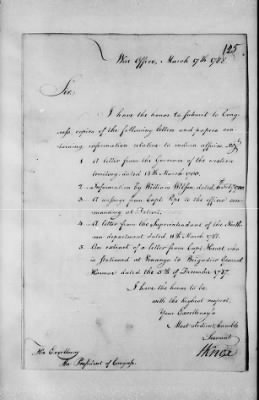 125
War Office, March 17th 1788
Sir,
I have the honor to submit to Con-
gress, copies of the following letters and papers con-
taining information relative to indian affairs, viz
1 A letter from the Governor of the western
territory, dated 14th March 1788.
2 Information by William Wilson, dated
3 A message from Capt Pipe to the officer com-
manding at Detroit.
4 A letter from the Superintendant of the North-
ern department dated 11th March 1788.
5 An extract of a letter from Capt Heart who
is stationed at Venango to Brigadier General
Harmar dated the 5th of December 1787.
I have the honor to be
with the highest respect,
Your Excellency's
Most obedient, humble
Servant
HKnox
His Excellency
The President of Congress.